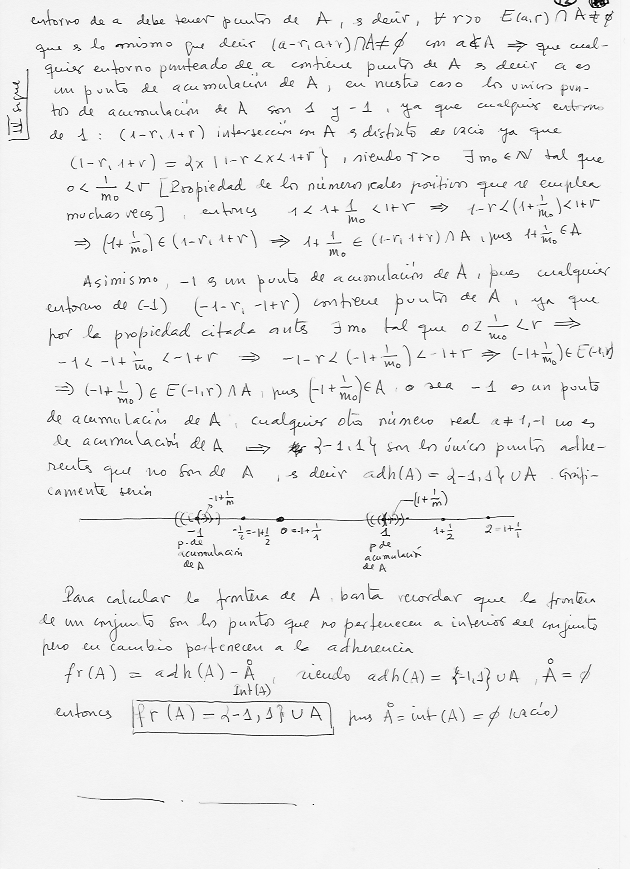 entorno de a debe tener puntos de A, es decir, ∀ r>0 E(a,r) ∩ A ≠ ∅
que es lo mismo que decir (a-r, a+r) ∩ A ≠ ∅ con a∉A ⇒ que cual-
quier entorno punteado de a contiene puntos de A es decir a es
un punto de acumulación de A, en nuestro caso los únicos pun-
tos de acumulación de A son 1 y -1, ya que cualquier entorno
de 1: (1-r, 1+r) intersección con A es distinto de vacío ya que
(1-r, 1+r) = {x | 1-r<x<1+r}, siendo r>0 ∃ m₀ ∈ ℕ tal que
0 < 1/m₀ < r [Propiedad de los números reales positivos que se emplea
muchas veces], entonces 1 < 1+1/m₀ < 1+r ⇒ 1-r<(1+1/m₀)<1+r
⇒ (1+1/m₀) ∈ (1-r, 1+r) ⇒ 1+1/m₀ ∈ (1-r, 1+r) ∧ A, pues 1+1/m₀ ∈ A
Asimismo, -1 es un punto de acumulación de A, pues cualquier
entorno de (-1) (-1-r, -1+r) contiene puntos de A, ya que
por la propiedad citada antes ∃ m₀ tal que 0 < 1/m₀ < r ⇒
-1 < -1+1/m₀ < -1+r ⇒ -1-r < (-1+1/m₀) < -1+r ⇒ (-1+1/m₀) ∈ E(-1,r)
⇒ (-1+1/m₀) ∈ E(-1,r) ∧ A, pues (-1+1/m₀) ∈ A. o sea -1 es un punto
de acumulación de A, cualquier otro número real a ≠ 1,-1 no es
de acumulación de A ⇒ {-1,1} son los únicos puntos adhe-
rentes que no son de A, es decir adh(A) = {-1,1} ∪ A. Gráfi-
camente sería
-1+1/m
(1+1/m)
-1
-1/2=-1+1/2
0=-1+1/1
1
1+1/2
2=1+1/1
p. de
acumulación
de A
p de
acumulación
de A
Para calcular la frontera de A, basta recordar que la frontera
de un conjunto son los puntos que no pertenecen a interior del conjunto
pero en cambio pertenecen a la adherencia
fr(A) = adh(A) - Å, siendo adh(A) = {-1,1} ∪ A, Å = ∅
Int(A)
entonces fr(A) = {-1,1} ∪ A pues Å = int(A) = ∅ (vacío)
III sigue